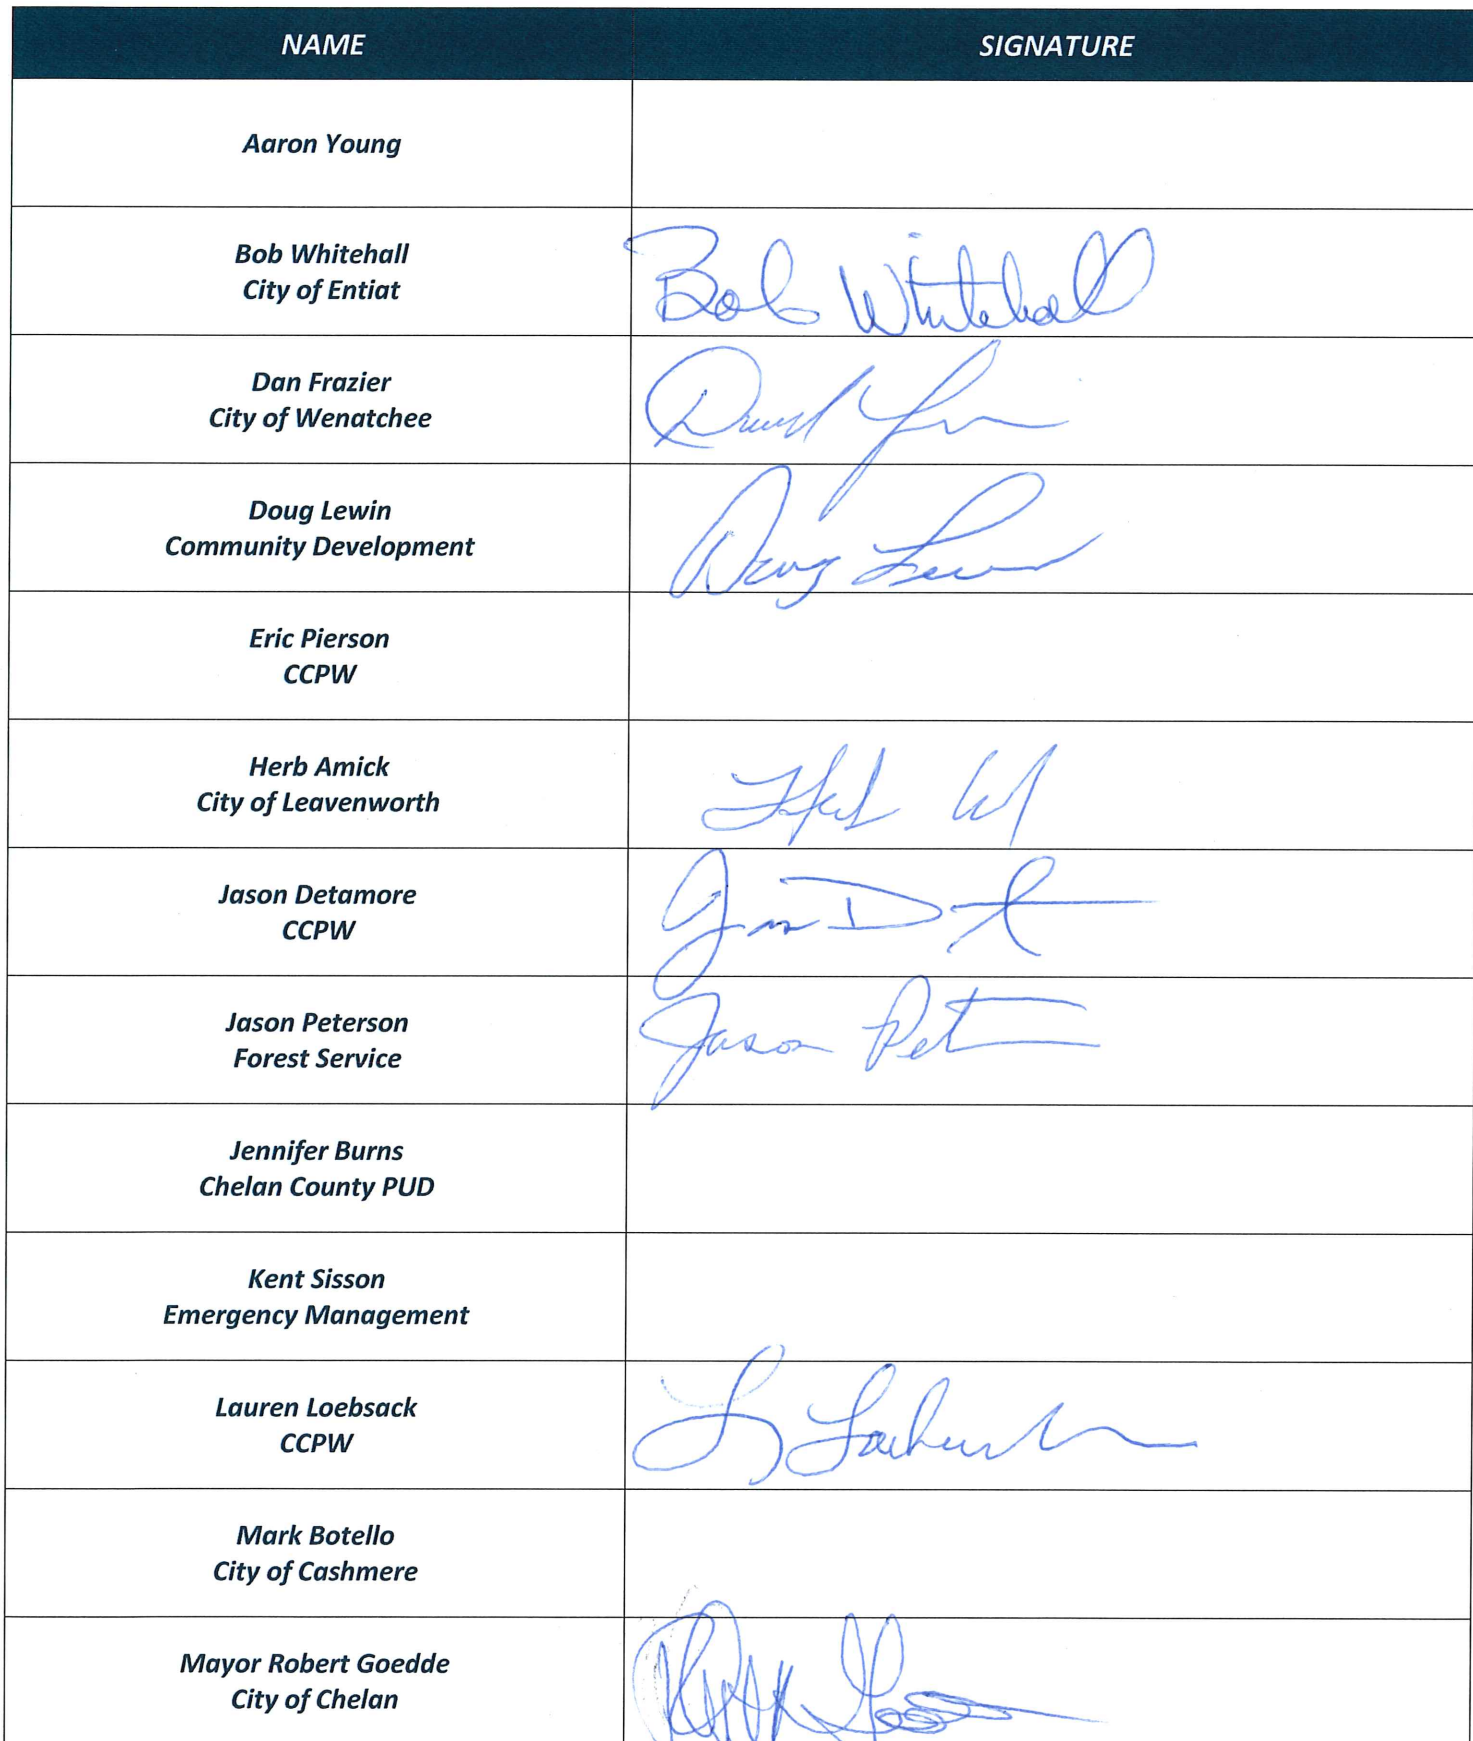 NAME SIGNATURE
Aaron Young
Bob Whitehall Bob Whitehall
City of Entiat
Dan Frazier
City of Wenatchee
Doug Lewin Doug Lewin
Community Development
Eric Pierson
CCPW
Herb Amick
City of Leavenworth
Jason Detamore
CCPW
Jason Peterson Jason Pet
Forest Service
Jennifer Burns
Chelan County PUD
Kent Sisson
Emergency Management
Lauren Loebsack
CCPW
Mark Botello
City of Cashmere
Mayor Robert Goedde
City of Chelan